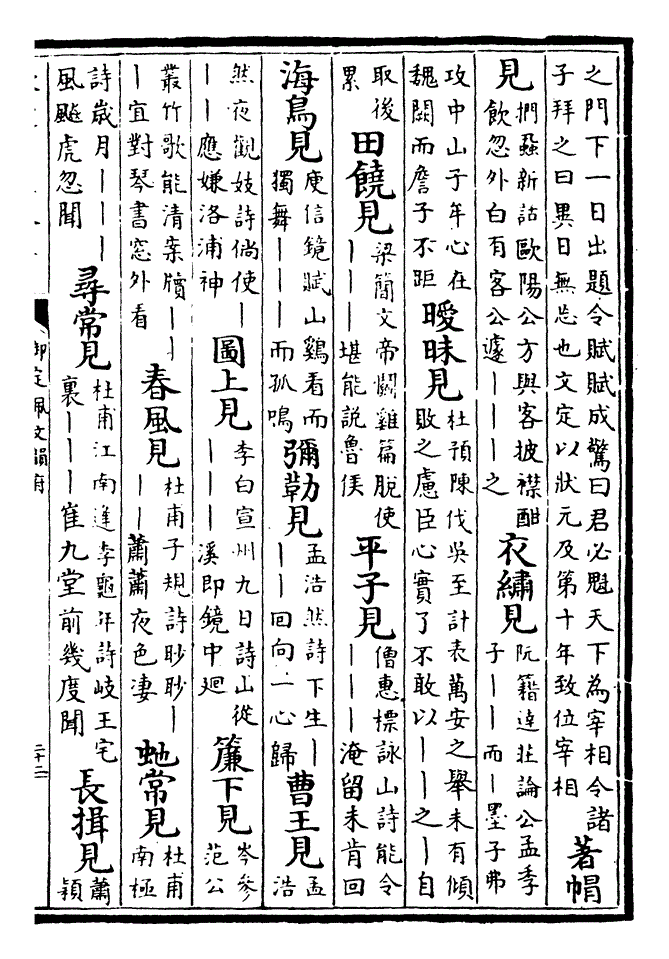 之門下一日出題令賦賦成驚曰君必魁天下為宰相令諸
子拜之曰異日無忘也文定以狀元及第十年致位宰相
著帽
見
捫蝨新話歐陽公方與客披襟酣
飲忽外白有客公遽｜｜｜之
衣繡見
阮籍達莊論公孟季
子｜｜而｜墨子弗
攻中山子年心在
魏闕而詹子不距
曖昧見
杜預陳伐吳至計表萬安之舉未有傾
敗之慮臣心實了不敢以｜｜之｜自
取後
累
田饒見
梁簡文帝鬭雞篇脫使
｜｜｜堪能說魯侯
平子見
僧惠標詠山詩能令
｜｜｜淹留未肯回
海鳥見
庾信鏡賦山鷄看而
獨舞｜｜｜而孤鳴
彌勒見
孟浩然詩下生｜
｜｜回向一心歸
曹王見
孟
浩
然夜觀妓詩倘使｜
｜｜應嫌洛浦神
圖上見
李白宣州九日詩山從
｜｜｜溪即鏡中廻
簾下見
岑參
范公
叢竹歌能清案牘｜｜
｜宜對琴書窓外看
春風見
杜甫子規詩眇眇｜
｜｜蕭蕭夜色淒
虵常見
杜甫
南極
詩歲月｜｜｜
風飈虎忽聞
尋常見
杜甫江南逢李龜年詩岐王宅
裏｜｜｜崔九堂前幾度聞
長揖見
蕭
穎
御定佩文韻府